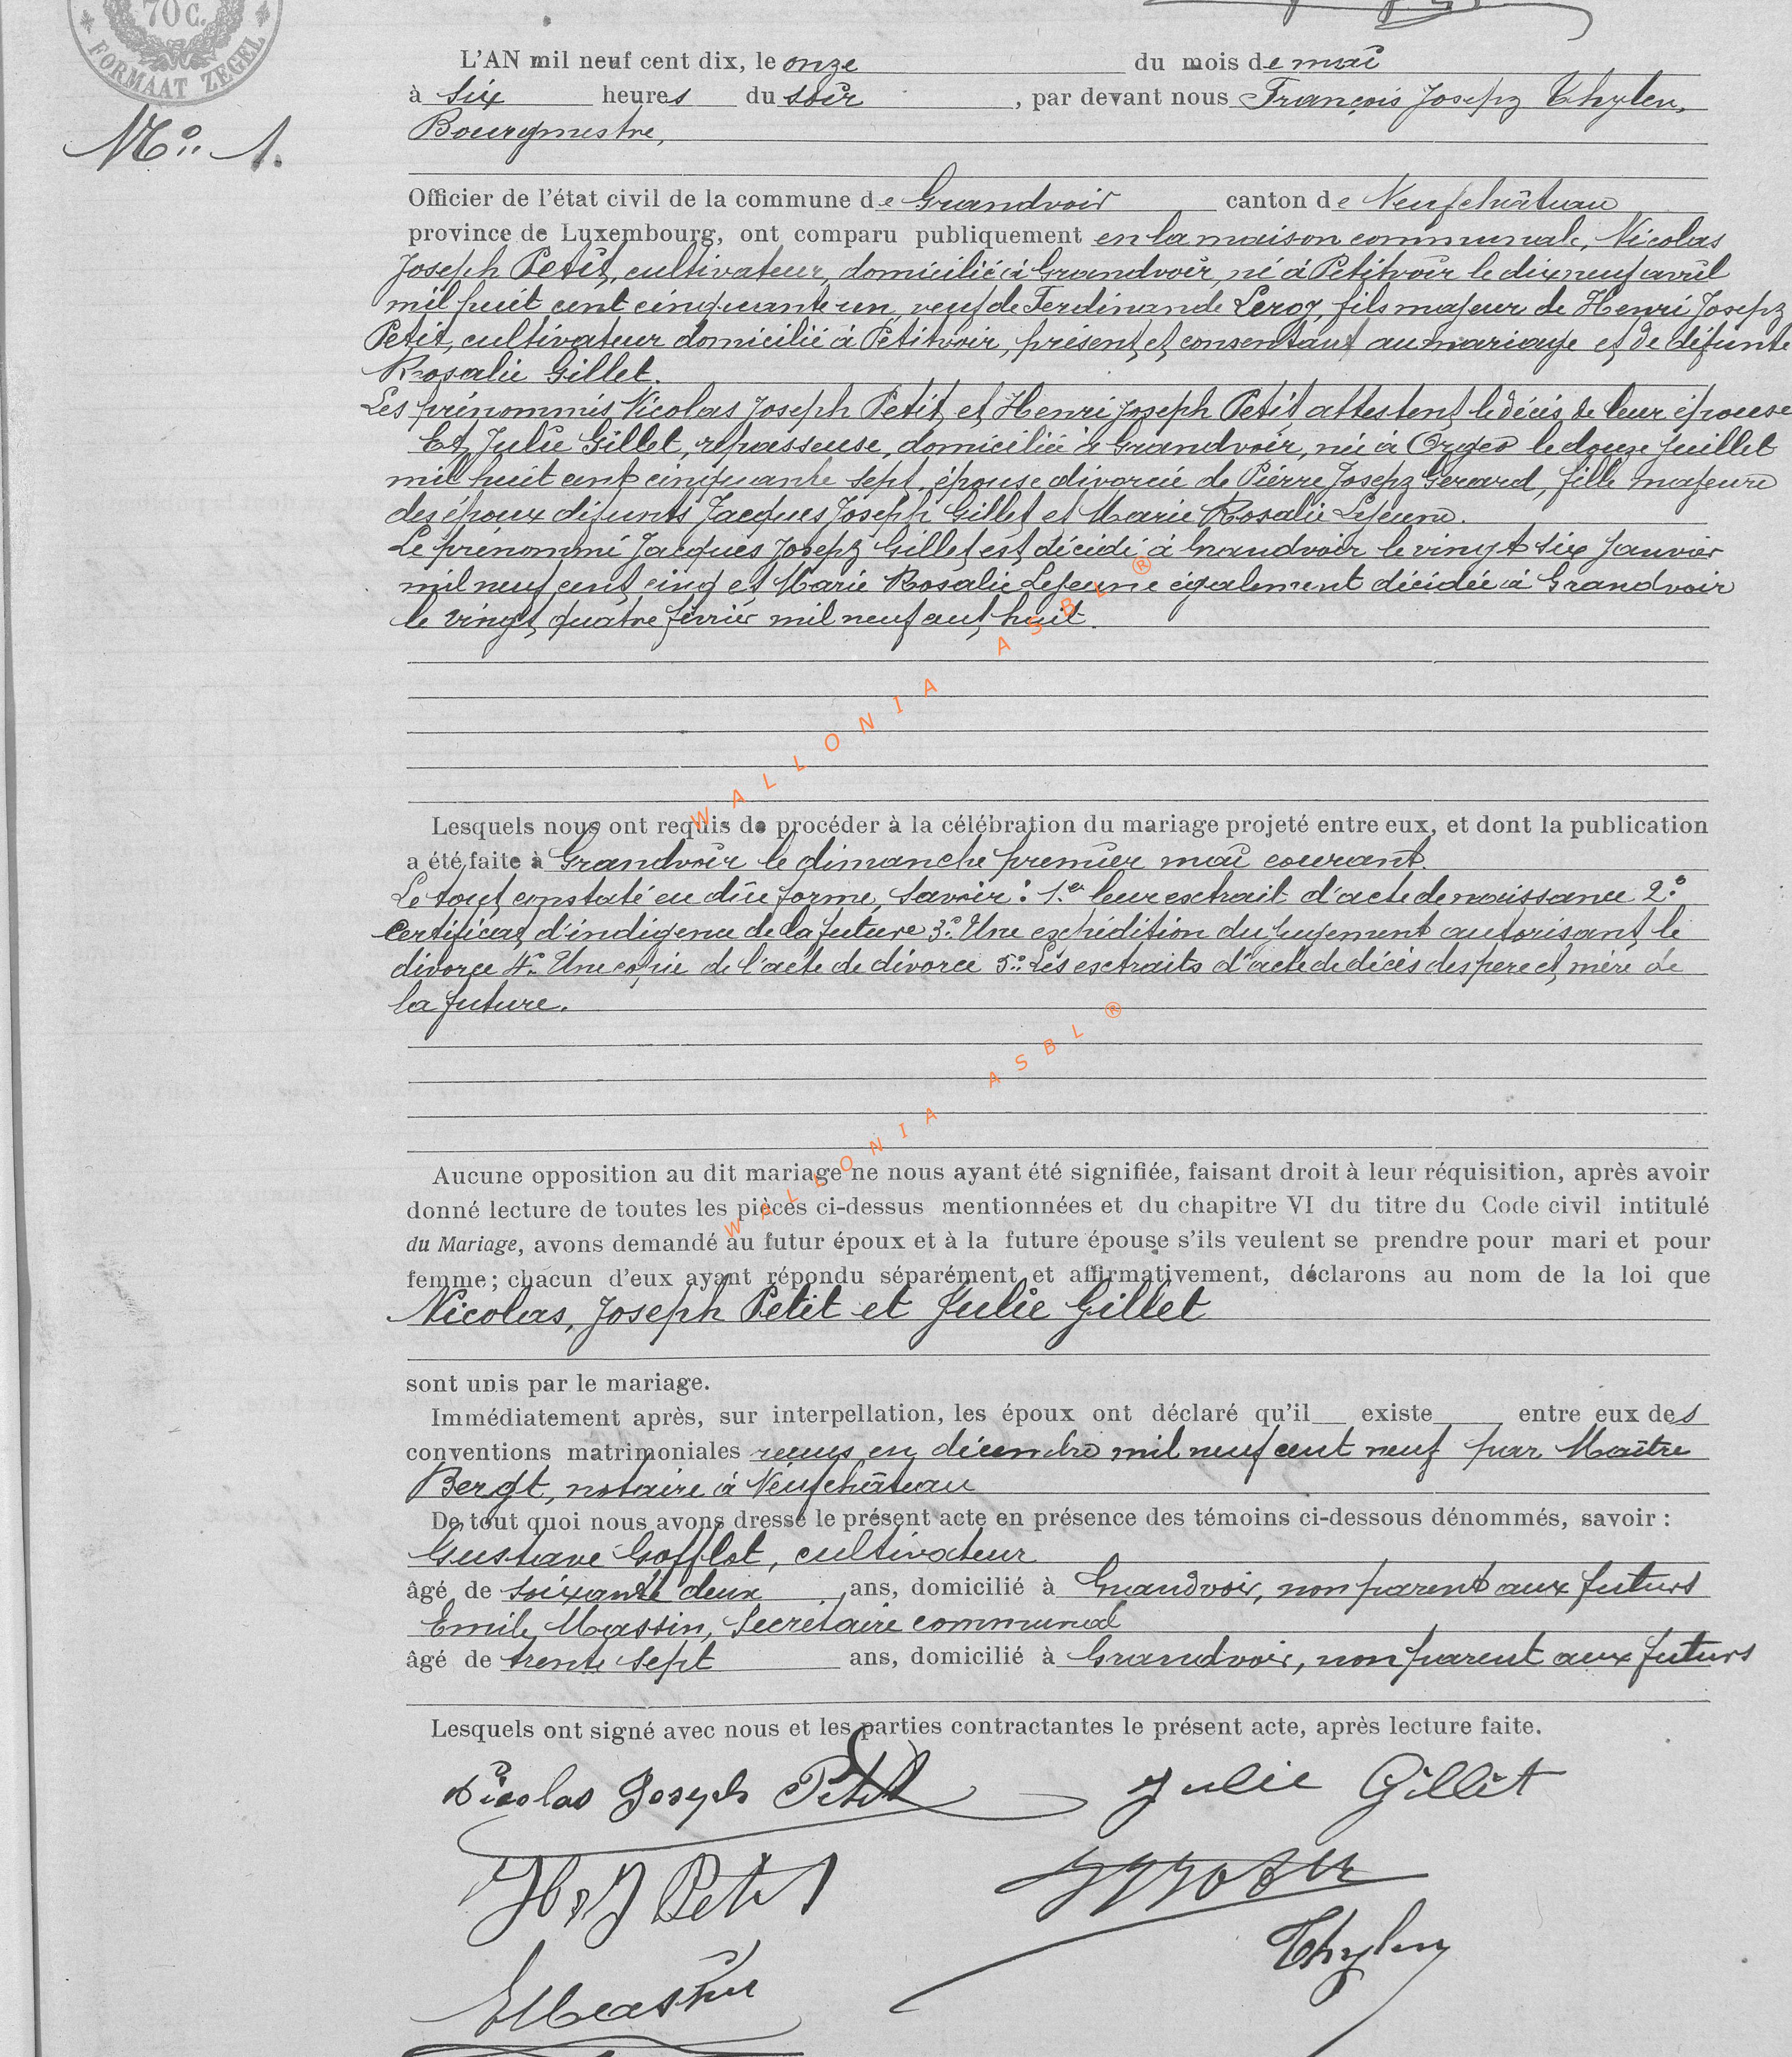 70 C.
FORMAAT ZEGEL
L'AN mil neuf cent dix, le onze du mois de mai
à six heures du soir, par devant nous François Joseph Thylen,
Bourgmestre,
No. 1.
Officier de l'état civil de la commune de Grandvoir canton de Neufchâteau
province de Luxembourg, ont comparu publiquement en la maison communale, Nicolas
Joseph Petit, cultivateur, domicilié à Grandvoir, né à Petitvoir le dix neuf avril
mil huit cent cinquante un, veuf de Ferdinande Leroy, fils majeur de Henri Joseph
Petit, cultivateur domicilié à Petitvoir, présent et consentant au mariage et de défunte
Rosalie Gillet.
Les prénommés Nicolas Joseph Petit et Henri Joseph Petit attestent le décès de leur épouse
Et Julie Gillet, repasseuse, domiciliée à Grandvoir, née à Orgeo le douze juillet
mil huit cent cinquante sept, épouse divorcée de Pierre Joseph Gerard, fille majeure
des époux défunts Jacques Joseph Gillet et Marie Rosalie Lejeune.
Le prénommé Jacques Joseph Gillet est décédé à Grandvoir le vingt six janvier
mil neuf cent cinq et Marie Rosalie Lejeune également décédée à Grandvoir
le vingt quatre février mil neuf cent huit.
WALLONIA ASBL ®
Lesquels nous ont requis de procéder à la célébration du mariage projeté entre eux, et dont la publication
a été faite à Grandvoir le dimanche premier mai courant.
Le tout constaté en due forme, savoir : 1.er leur extrait d'acte de naissance 2.o
Certificat d'indigence de la future 3.o Une expédition du jugement autorisant le
divorce 4.o Une copie de l'acte de divorce 5.o Les extraits d'acte de décès des pere et mère de
la future.
WALLONIA ASBL ®
Aucune opposition au dit mariage ne nous ayant été signifiée, faisant droit à leur réquisition, après avoir
donné lecture de toutes les pièces ci-dessus mentionnées et du chapitre VI du titre du Code civil intitulé
du Mariage, avons demandé au futur époux et à la future épouse s'ils veulent se prendre pour mari et pour
femme; chacun d'eux ayant répondu séparément et affirmativement, déclarons au nom de la loi que
Nicolas, Joseph Petit et Julie Gillet
sont unis par le mariage.
Immédiatement après, sur interpellation, les époux ont déclaré qu'il existe entre eux des
conventions matrimoniales reçues en décembre mil neuf cent neuf par Maître
Bergt, notaire à Neufchâteau
De tout quoi nous avons dressé le présent acte en présence des témoins ci-dessous dénommés, savoir :
Gustave Gofflot, cultivateur
âgé de soixante deux ans, domicilié à Grandvoir, non parent aux futurs
Emile Massin, Secrétaire communal
âgé de trente sept ans, domicilié à Grandvoir, non parent aux futurs
Lesquels ont signé avec nous et les parties contractantes le présent acte, après lecture faite.
Nicolas Joseph Petit Julie Gillet
H J Petit
Thylen
E Massin